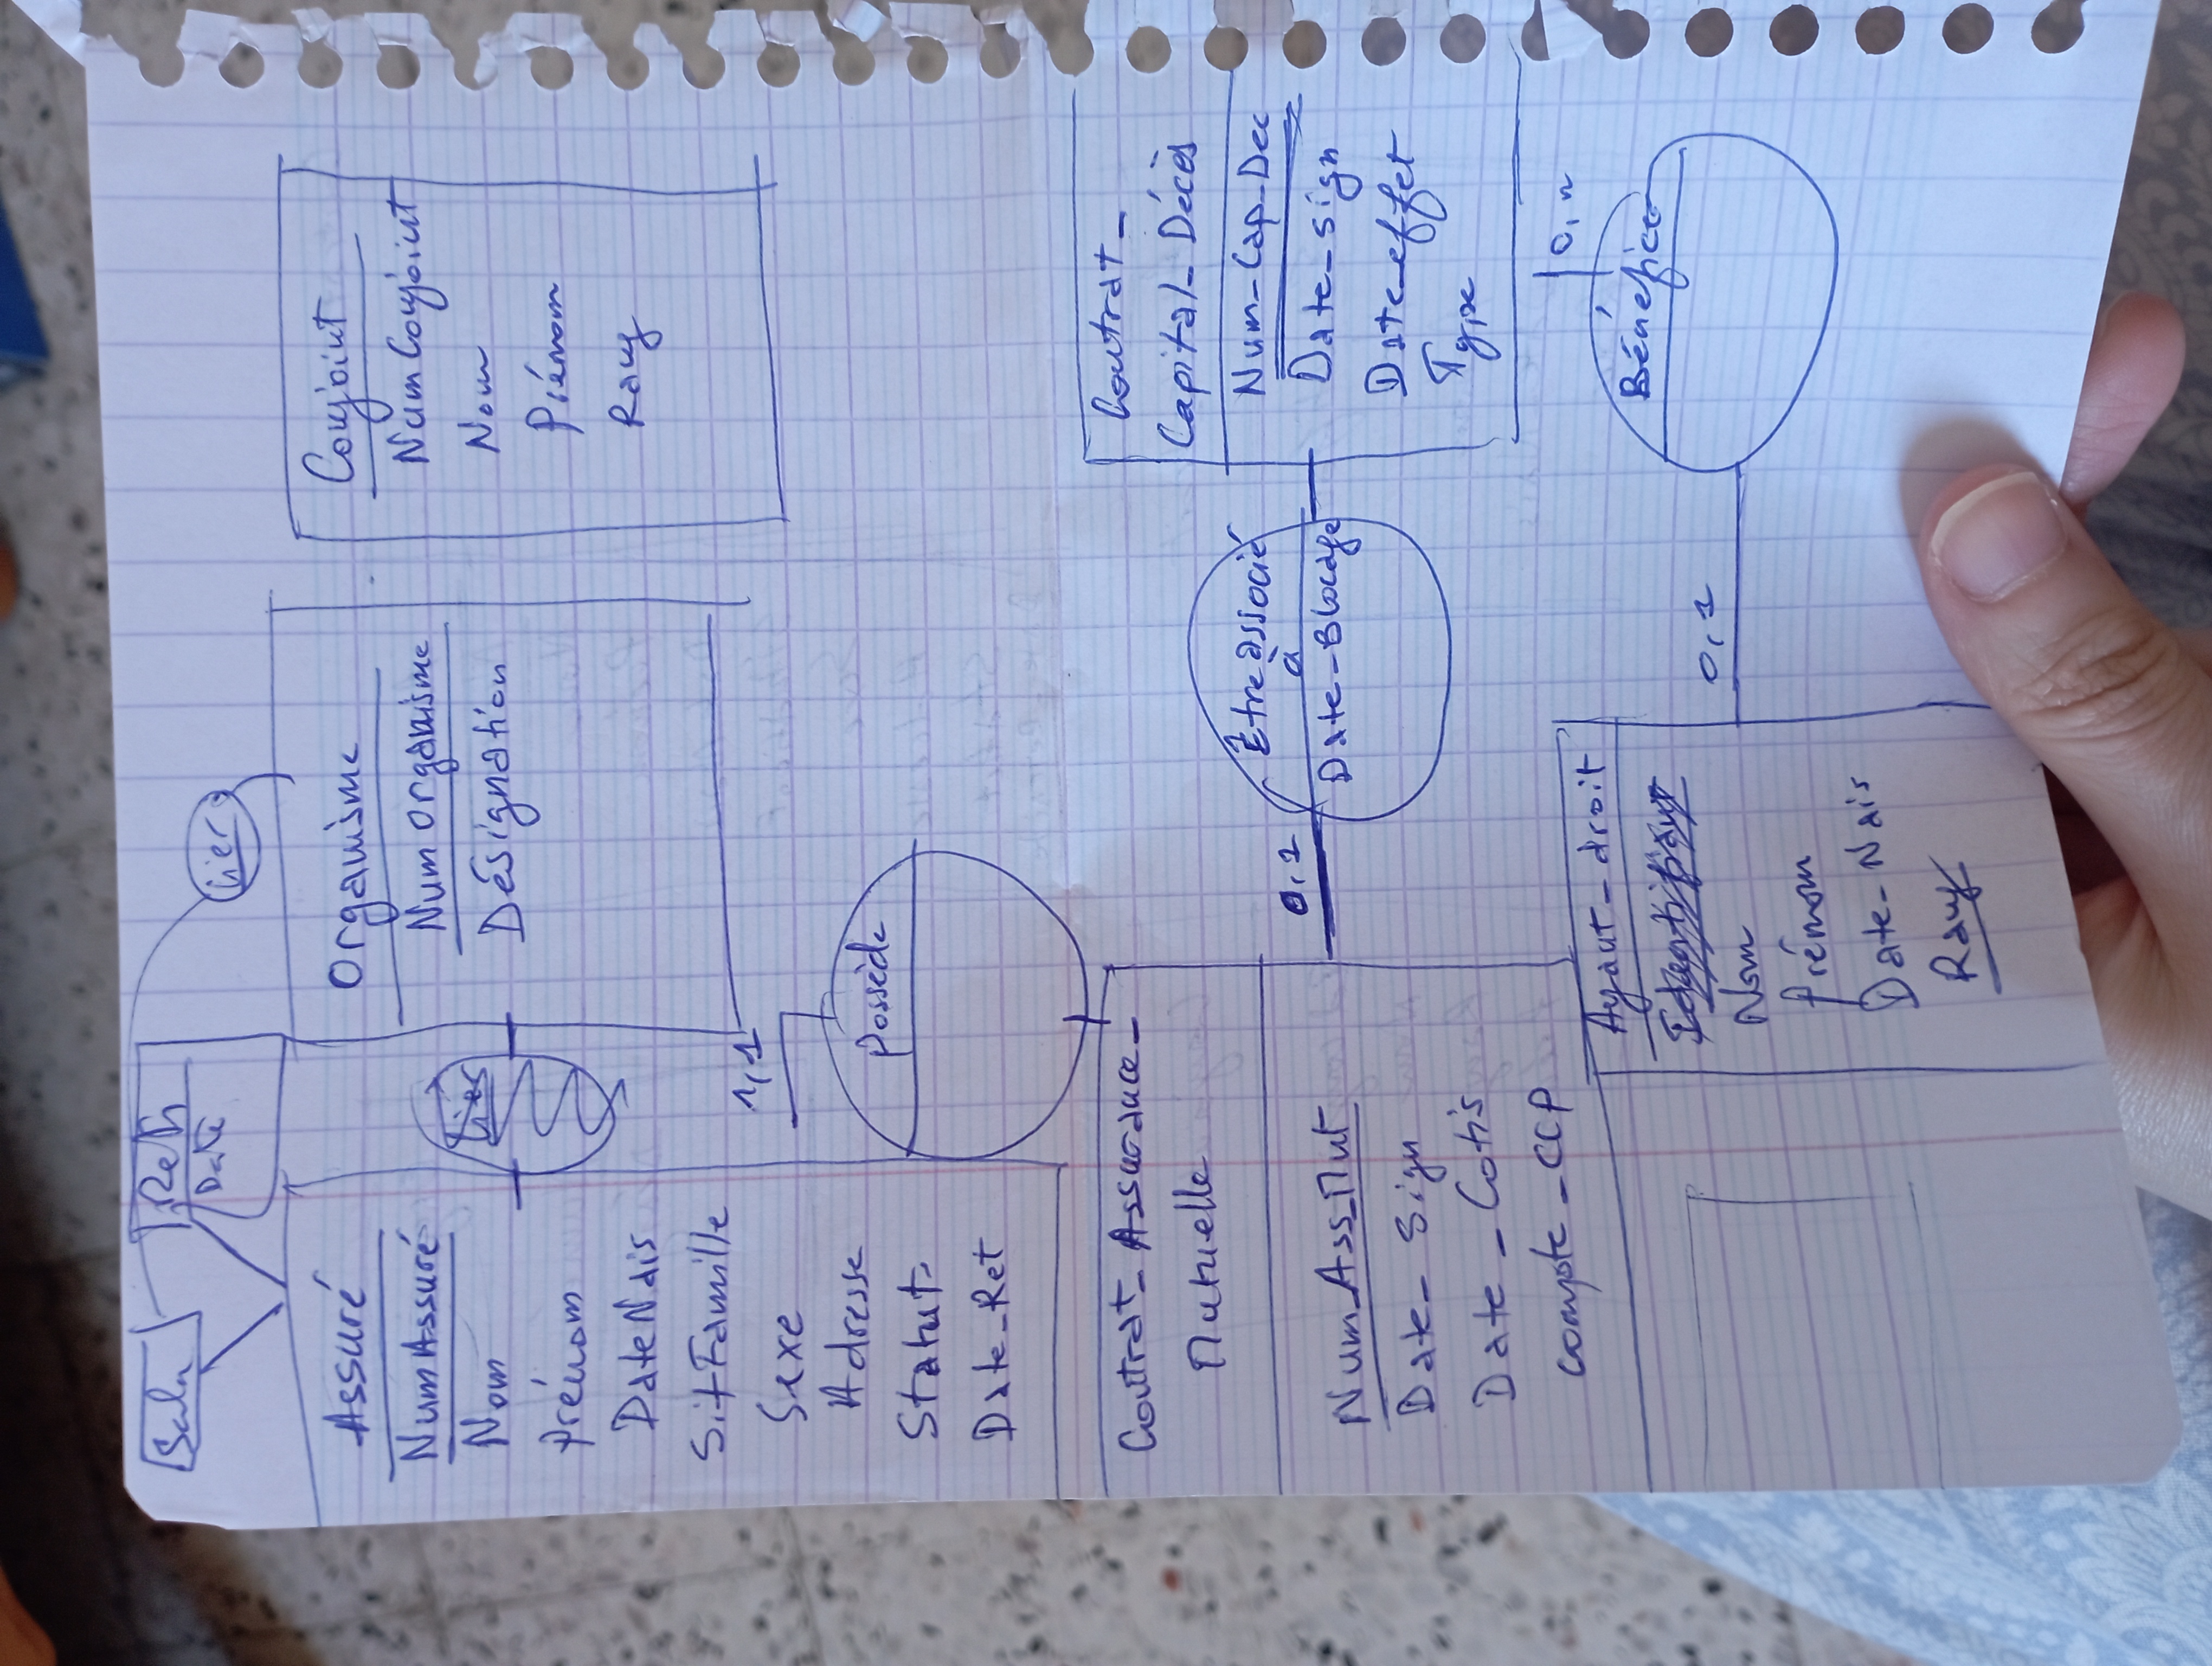 Sala
Retr
Date
lier
Assuré
NumAssuré
Nom
Prénom
DateNais
SitFamille
Sexe
Adresse
Statut
Date_Ret
lier
Organisme
Num Organisme
Désignation
Conjoint
Num Conjoint
Nom
Prénom
Rang
1,1
Possède
Contrat_Assurance_
Mutuelle
Num_Ass_Mut
Date_Sign
Date_Cotis
compte_CCP
0,1
Être associé
à
Date_Blocage
Contrat_
Capital_Décès
Num_Cap_Dec
Date_sign
Date_effet
Type
0,n
Bénéficie
0,1
Ayant_droit
Nom
Prénom
Date_Nais
Rang